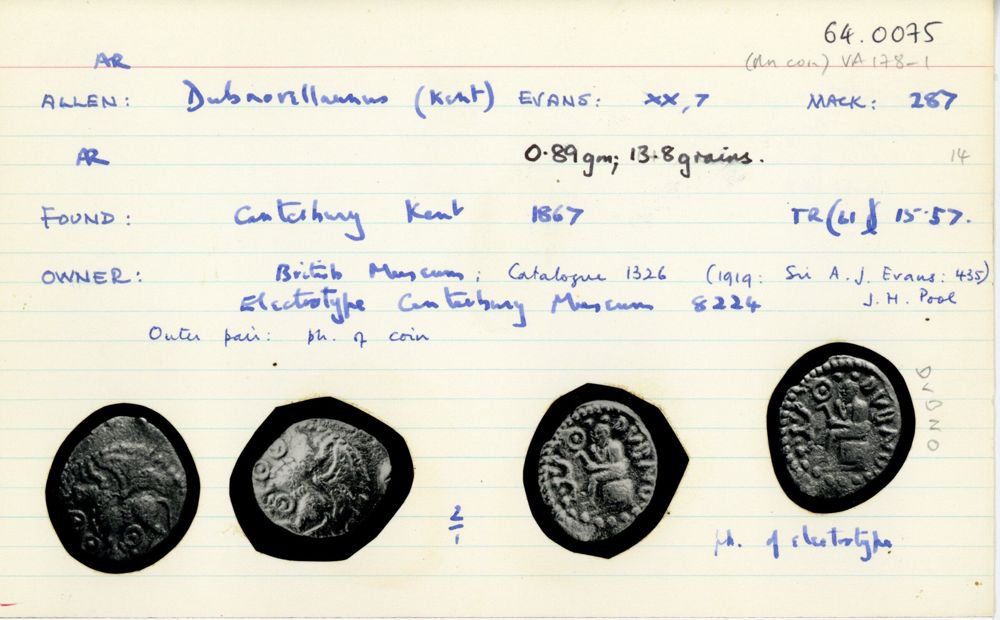 64.0075
AR
(on coin) VA 178-1
ALLEN: Dubnovellaunus (Kent) EVANS: XX, 7 MACK: 287
AR
0.89 gm; 13.8 grains. 14
FOUND: Canterbury Kent 1867 TR (61) 15·57.
OWNER: British Museum; Catalogue 1326 (1919: Sir A. J. Evans: 435)
Electrotype Canterbury Museum 8224 J. H. Pool
Outer pair: ph. of coin
DVBNO
2
1
ph. of electrotype